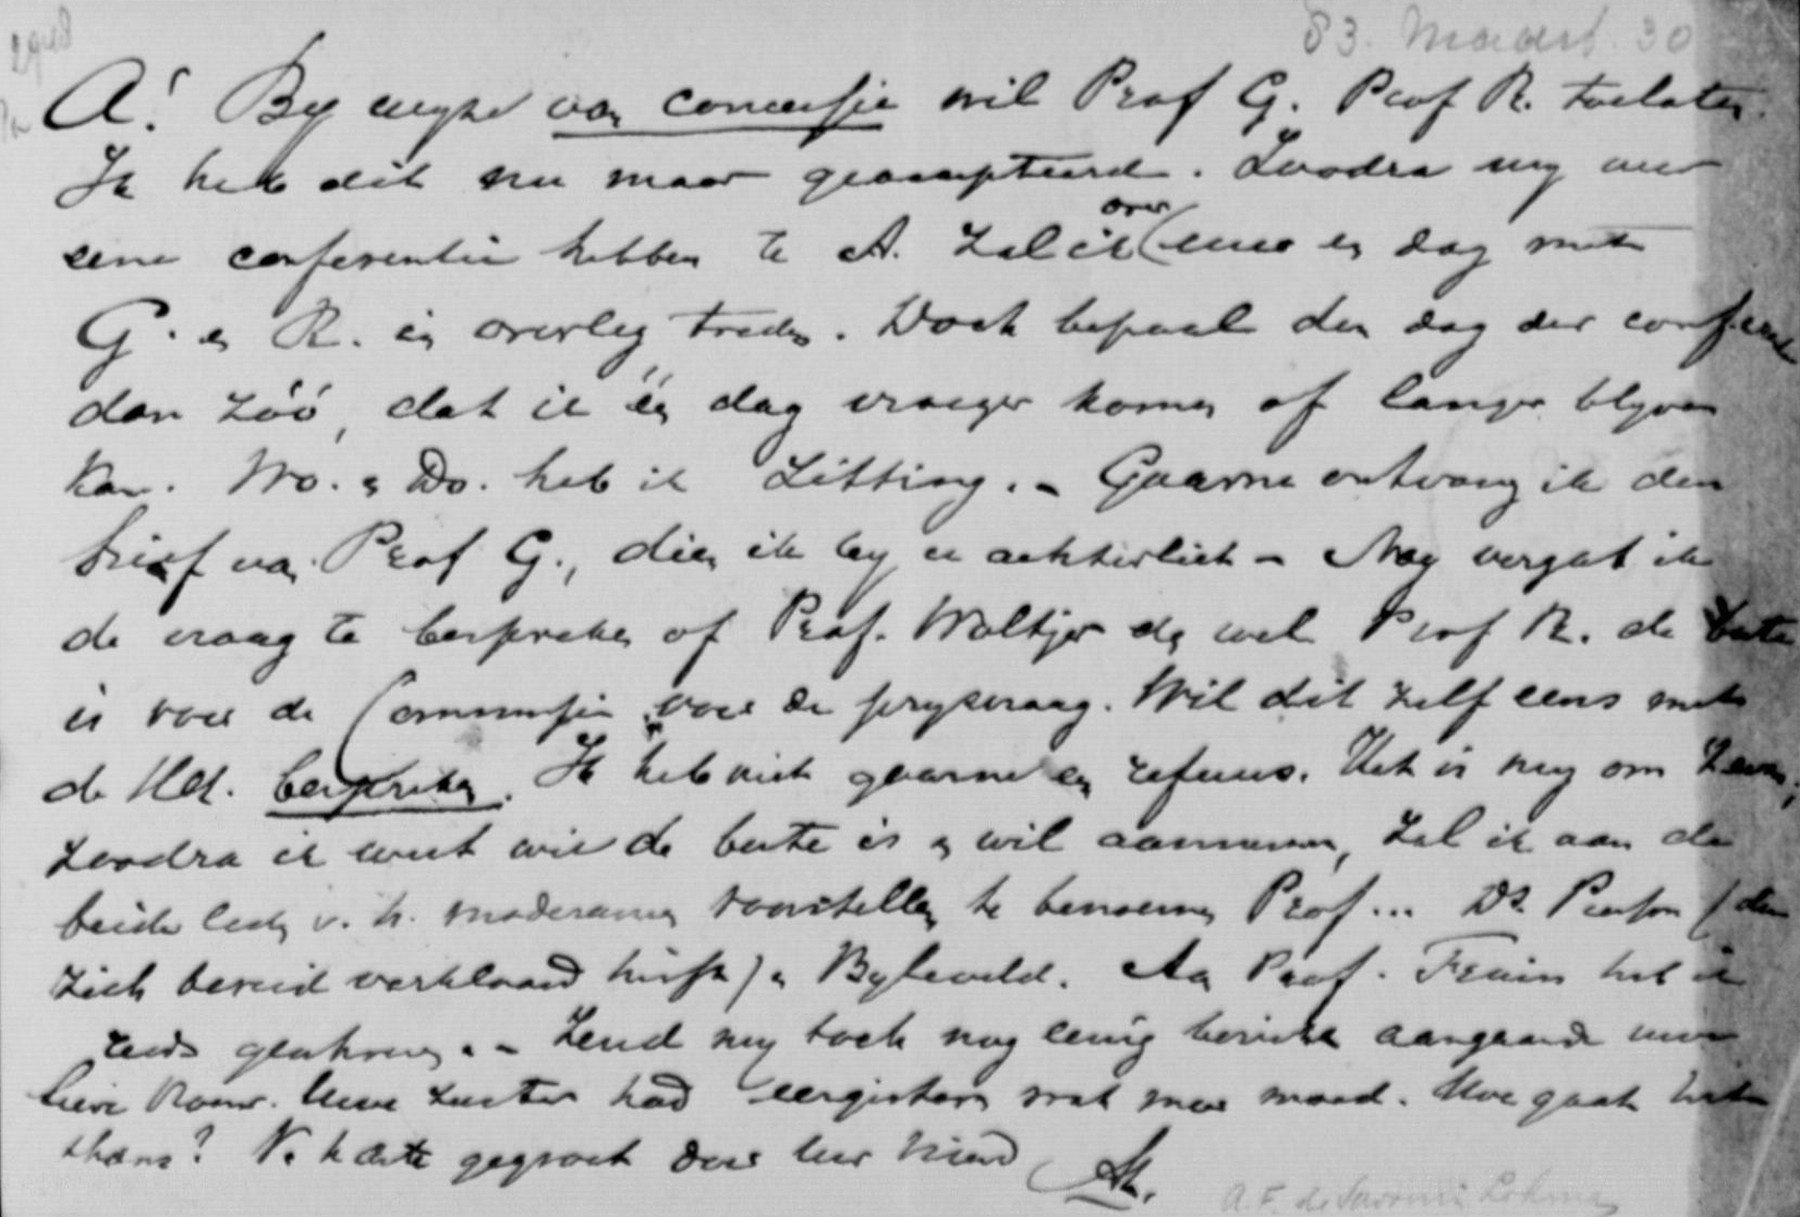 83. Maart. 30
A! By wyze van concessie wil Prof G. Prof R. toelaten.
Ik heb dit nu maar geaccepteerd. Zoodra wy weer
eene conferentie hebben te A. zal ik over eene en dag met
G. en R. in overleg treden. Doch bepaal den dag der conferentie
dan zóó, dat ik één dag vroeger komen of langer blyven
kan. Wo. en Do. heb ik zitting. - Gaarne ontvang ik den
brief van Prof G., dien ik by u achterliet - Nog vergat ik
de vraag te bespreken of Prof. Woltjer dan wel Prof R. de beste
is voor de Commissie voor de prysvraag. Wil dit zelf eens met
de HH. bespreken. Ik heb niet gaarne een refuus. Het is my om
zoodra ik weet wie de beste is en wil aannemen, zal ik aan de
beide leden v. h. moderamen voorstellen te benoemen Prof... Dr. Pierson (die
zich bereid verklaard heeft) en Byleveld. Aan Prof. Fruin heb ik
reeds geschreven. - Zend my toch nog eenig bericht aangaande uwe
lieve vrouw. Uwe zuster had eergisteren wat meer moed. Hoe gaat het
thans? V. harte gegroet door uw vriend
A. F. de Savornin Lohman